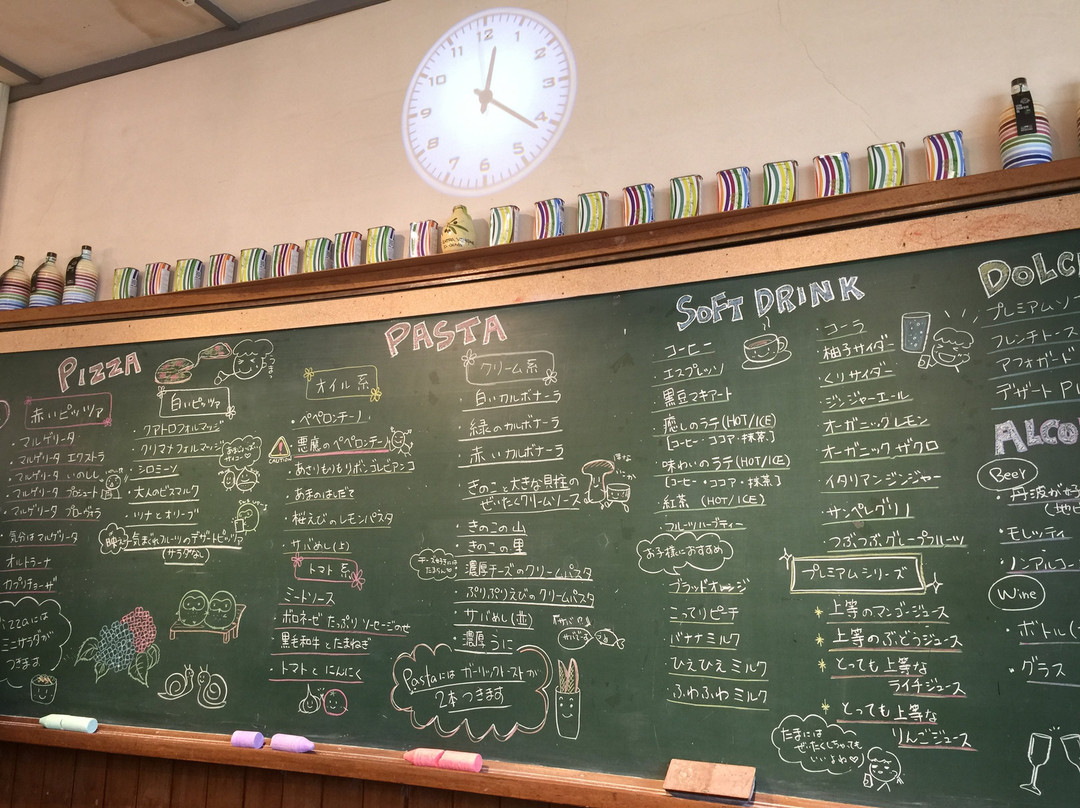 12
1
2
3
4
5
6
7
8
9
10
11
PIZZA
赤いピッツァ
・マルゲリータ
・マルゲリータ エクストラ
・マルゲリータ いのしし
・マルゲリータ プロシュート
・マルゲリータ ブローヴァラ
・気分はマルゲリータ
オルトラーナ
カプリチョーザ
Pizzaには
ミニサラダが
つきます
白いピッツァ
・クアトロフォルマッジ
・クリマナフォルマッジ
・シロミーソ
・大人のビスマルク
・ツナとオリーブ
・気まぐれフルーツのデザートピッツァ
(サラダなし)
PASTA
オイル系
・ペペロンチーノ
CAUTION
悪魔のペペロンチーノ
・あさりもりもりボンゴレビアンコ
・桜えびのレモンパスタ
・サバめし(上)
トマト系
・ミートソース
・ボロネーゼ たっぷりソーセージのせ
・黒毛和牛とたまねぎ
・トマトとにんにく
クリーム系
・白いカルボナーラ
・緑のカルボナーラ
・赤いカルボナーラ
・きのこと大きな貝柱の
ぜいたくクリームソース
・きのこの山
・きのこの里
・濃厚チーズのクリームパスタ
・ぷりぷりえびのクリームパスタ
・サバめし(並)
・濃厚うに
Pastaには ガーリックトーストが
2本つきます
SOFT DRINK
・コーヒー
・エスプレッソ
・黒豆マキアート
・癒しのラテ(HOT/ICE)
[コーヒー・ココア・抹茶]
・味わいのラテ(HOT/ICE)
[コーヒー・ココア・抹茶]
・紅茶 (HOT/ICE)
・フルーツハーブティー
お子様におすすめ
・ブラッドオレンジ
・こってりピーチ
・バナナミルク
・ひえひえミルク
・ふわふわミルク
・コーラ
・柚子サイダー
・くりサイダー
・ジンジャーエール
・オーガニックレモン
・オーガニックザクロ
・イタリアンジンジャー
・サンペレグリノ
・つぶつぶグレープフルーツ
プレミアムシリーズ
上等のマンゴージュース
上等のぶどうジュース
とっても上等な
ライチジュース
とっても上等な
りんごジュース
たまには
ぜいたくしちゃっても
いいよね♡
DOLC
プレミアムソ
フレンチトース
アフォガード
デザート
ALCO
Beer
・丹波が好
・モレッティ
・ノンアルコー
Wine
・ボトル
・グラス